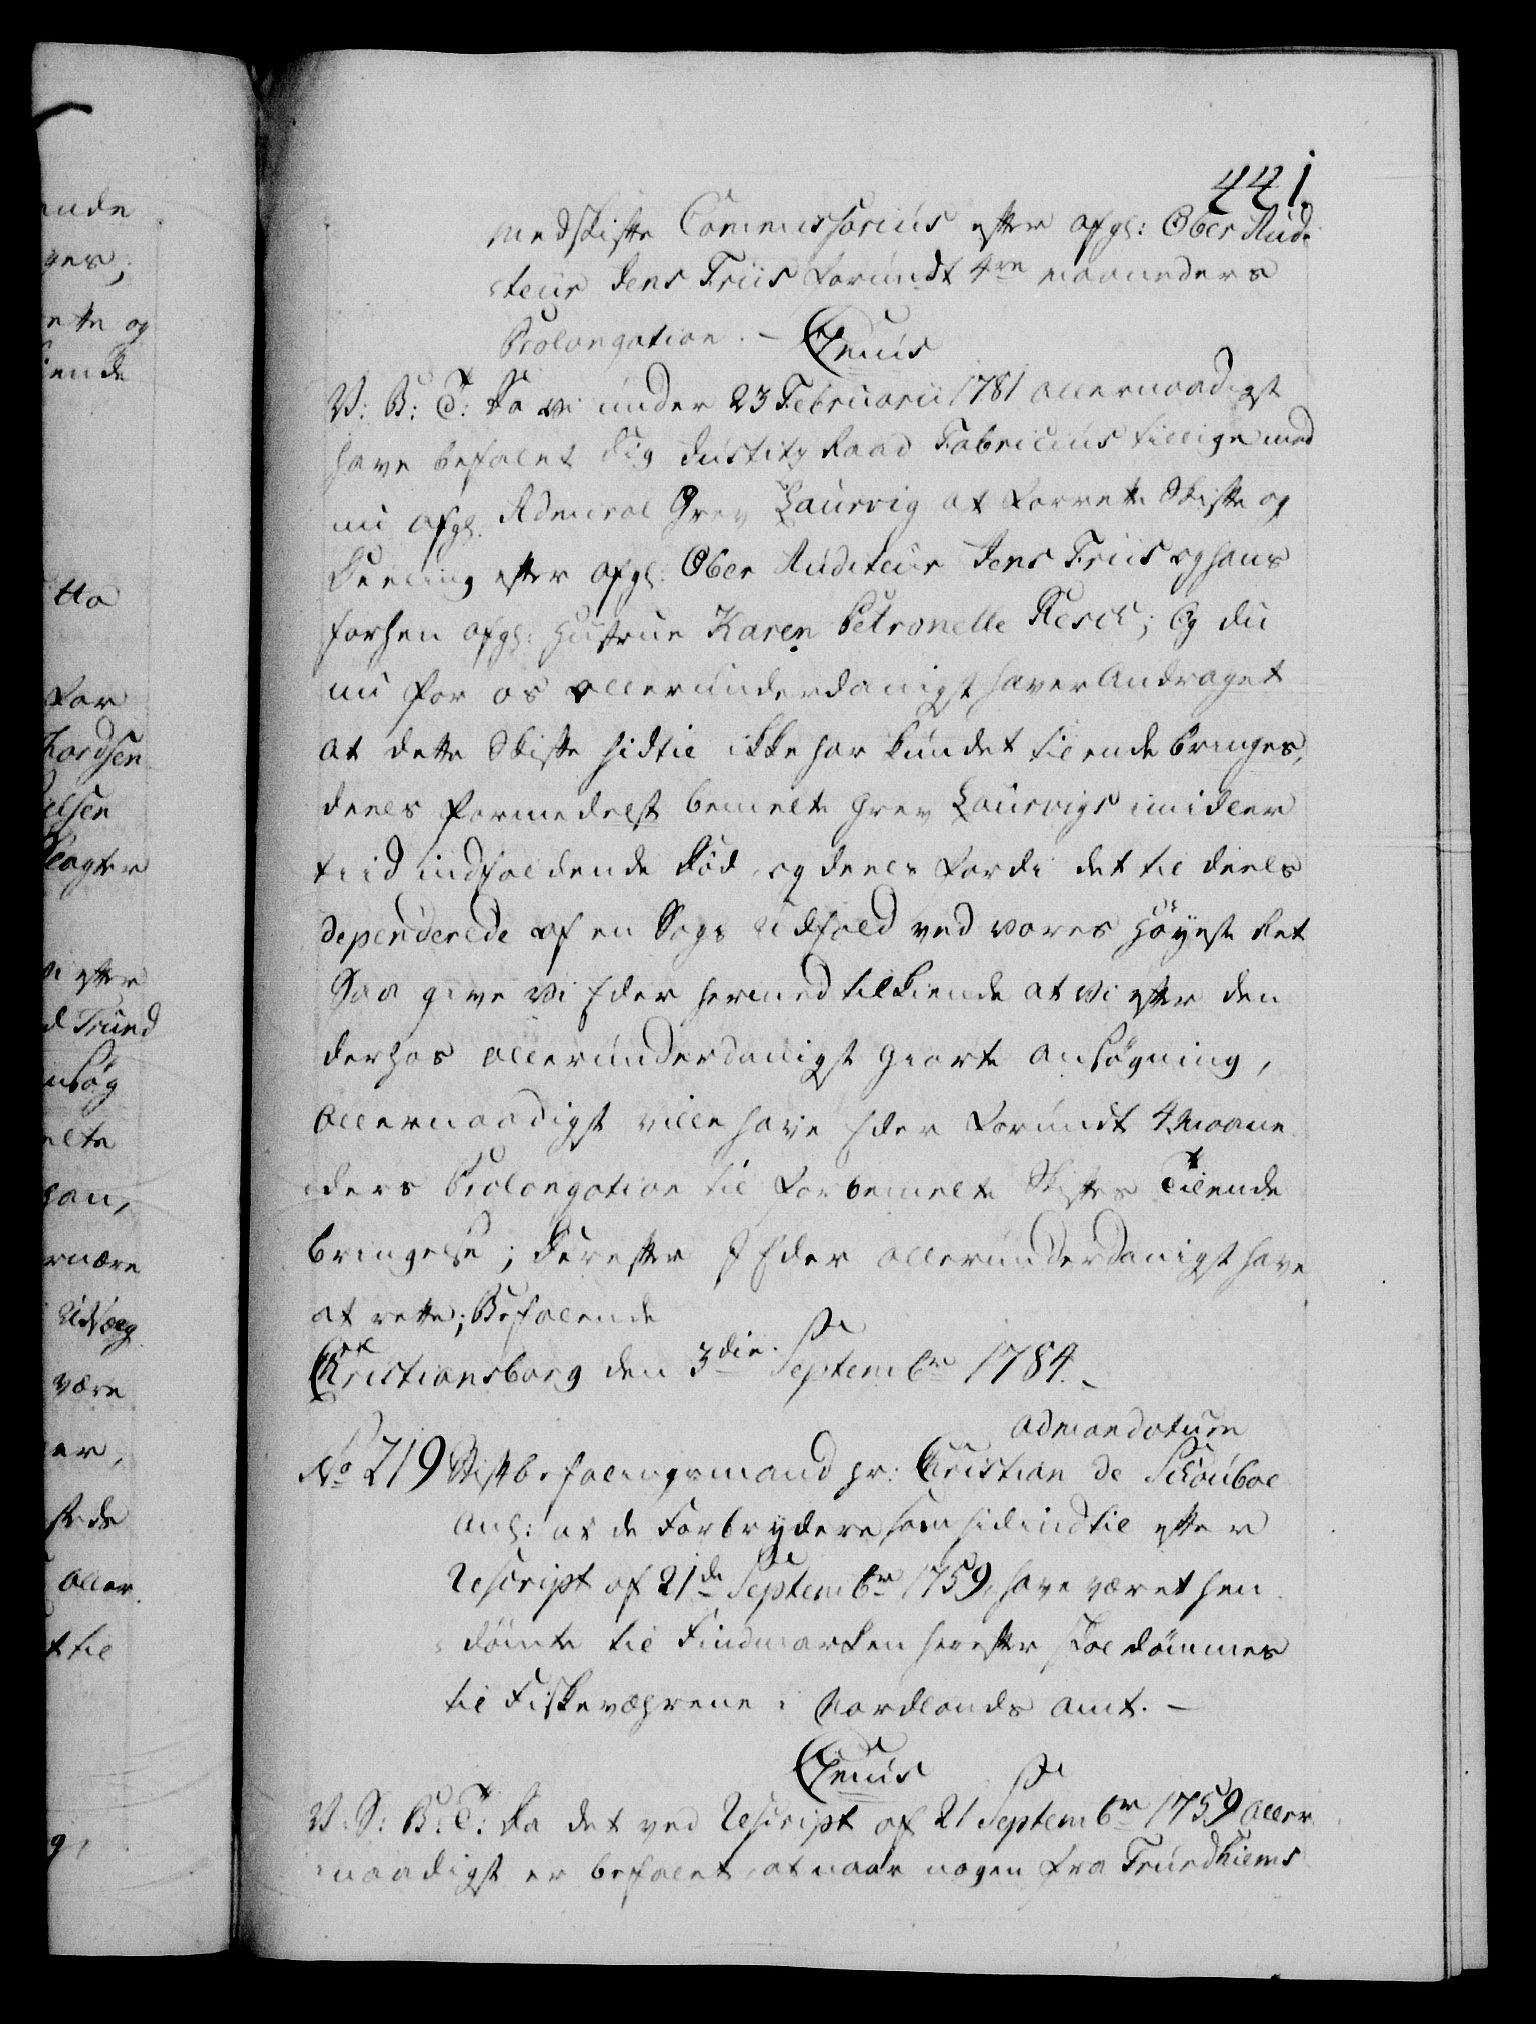 441.
medskifte Commissarius efter afgl: Ober Audi
teur Jens Friis forundt 4re maaneders
Prolongation. – Genus
V: B: T: Da vi under 23 Februarii 1781 allernaadigst
have befalet dig Justitz Raad Fabricius tillige med
nu afgl. Admiral Grev Laurvig at forrette Skifte og
Deeling efter afgl: Ober Auditeur Jens Friis og hans
forhen afgl: Hustrue Karen Petronelle Resch; Og du
nu for os allerunderdanigst haver Andraget
at dette Skifte hidtil ikke har kundet til ende bringes,
deels formedelst bemelte Grev Laurvigs imidler
tiid indfaldende Död, og deels fordi det til deels
dependerede af en Sags Udfald ved vores Höyeste Ret
Saa give vi Eder hermed tilkiende at vi efter den
derhos allerunderdanigst giorte ansögning,
allernaadigst ville have Eder forundt 4 Maane
ders Prolongation til forbemelte Skiftes Tilende
bringelse; Derefter I Eder allerunderdanigst have
at rette; Befalende
Christiansborg den 3die Septembr 1784. –
admandatum
No 219 Stiftbefalingsmand hr: Christian de Schouboe
anl: at de Forbrydere som hidindtil efter
Rescript af 21de Septembr 1759, have været hen
dömte til Findmarken herefter skal dömmes
til Fiskeværene i Nordlands Amt. –
Genus
V. S: B: T: Da det ved Rescript af 21 Septembr 1759 aller
naadigst er befalet, at naar nogen fra Trundhiems